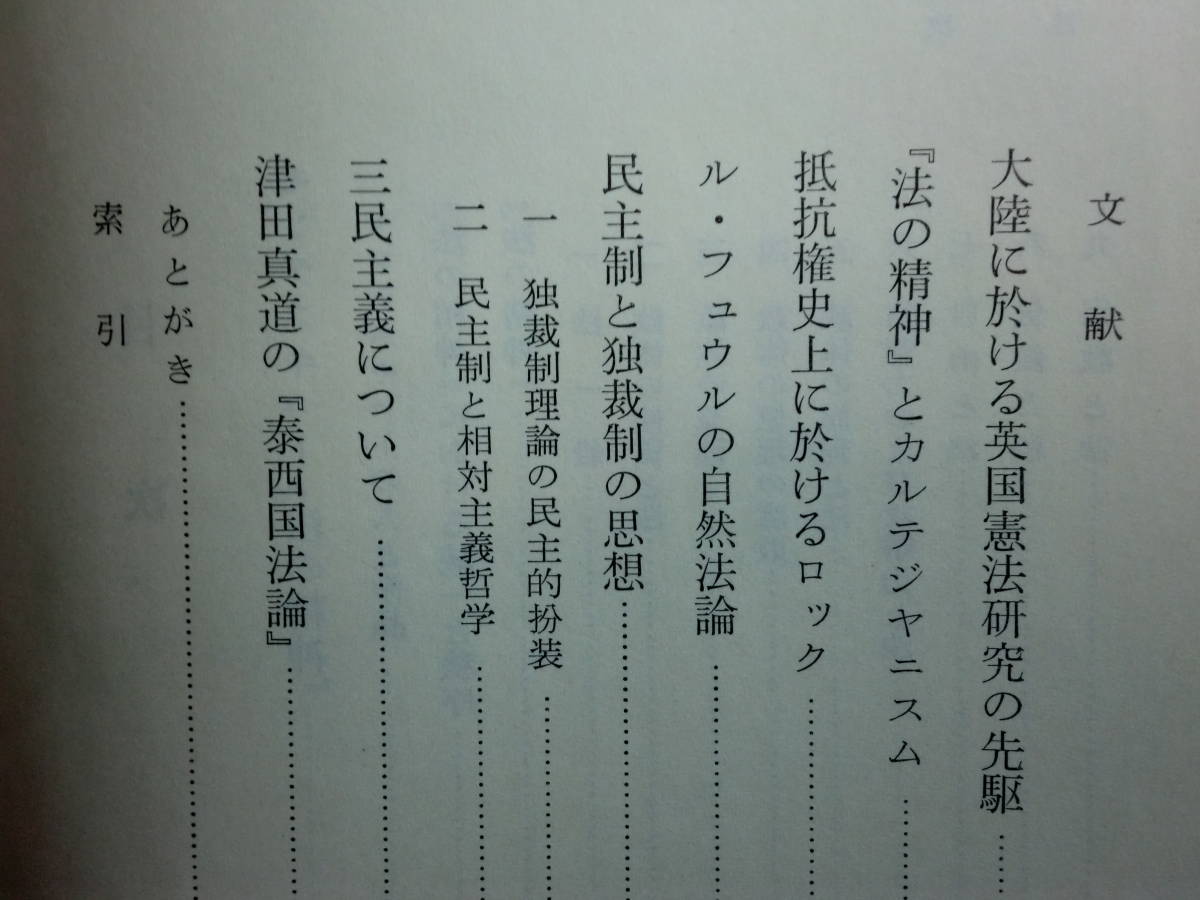 文献
大陸に於ける英国憲法研究の先駆……
『法の精神』とカルテジヤニスム……
抵抗権史上に於けるロック……
ル・フュウルの自然法論……
民主制と独裁制の思想……
一 独裁制理論の民主的扮装……
二 民主制と相対主義哲学……
三民主義について……
津田真道の『泰西国法論』……
あとがき……
索引